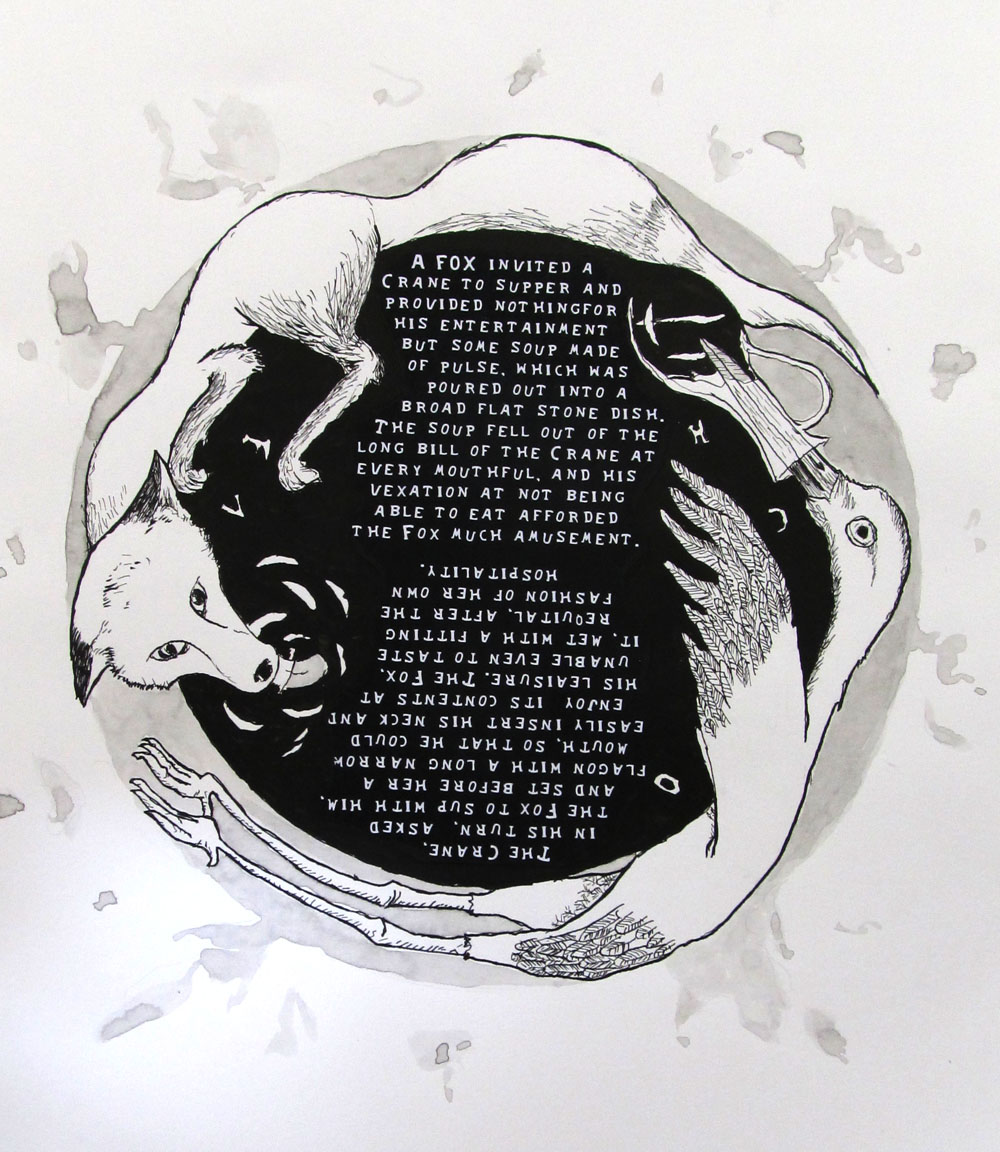 A FOX INVITED A
CRANE TO SUPPER AND
PROVIDED NOTHINGFOR
HIS ENTERTAINMENT
BUT SOME SOUP MADE
OF PULSE, WHICH WAS
POURED OUT INTO A
BROAD FLAT STONE DISH.
THE SOUP FELL OUT OF THE
LONG BILL OF THE CRANE AT
EVERY MOUTHFUL, AND HIS
VEXATION AT NOT BEING
ABLE TO EAT AFFORDED
THE FOX MUCH AMUSEMENT.
THE CRANE,
IN HIS TURN, ASKED
THE FOX TO SUP WITH HIM,
AND SET BEFORE HER A
FLAGON WITH A LONG NARROW
MOUTH, SO THAT HE COULD
EASILY INSERT HIS NECK ANT
ENJOY ITS CONTENTS AT
HIS LEAISURE. THE FOX,
UNABLE EVEN TO TASTE
IT, MET WITH A FITTING
REQUITAL, AFTER THE
FASHION OF HER OWN
HOSPITALITY.